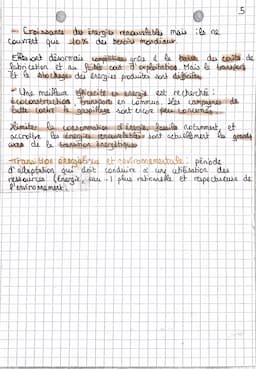 5
- Croissante des énergies renouvelables mais ils ne
couvrent que 20% des besoins mondiaux.
Elles sont désormais compétitives grâce à la baisse des coûts de
fabrication et au faible coût d'exploitation. Mais le transport
et le stockage des énergies produites sont difficiles.
- Une meilleure efficacité en énergie est recherchée :
écoconstruction, transports en commun. Les campagnes de
lutte contre le gaspillage sont encore peu concernés.
Limiter la consommation d'énergie fossile notamment, et
accroître les énergies renouvelables sont actuellement les grands
axes de la transition énergétique.
Transition énergétique et environnementale : période
d'adaptation qui doit conduire à une utilisation des
ressources (énergie, eau...) plus rationnelle et respectueuse de
l'environnement.